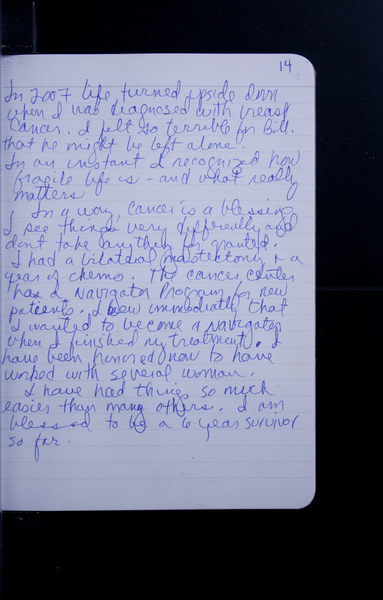 14
In 2007 life turned upside down
when I was diagnosed with breast
cancer. I felt so terrible for Bill.
that he might be left alone.
In an instant I recognized how
fragile life is - and what really
matters
In a way, cancer is a blessing
I see things very differently and
don't take anything for granted.
I had a bilateral mastectomy + a
year of chemo. The cancer center
has a Navigator Program for new
patients. I knew immediatly that
I wanted to become a navigator
when I finished my treatment. I
have been honored now to have
worked with several woman.
I have had things so much
easier than many others. I am
blessed to be a 6 year survivor
so far.